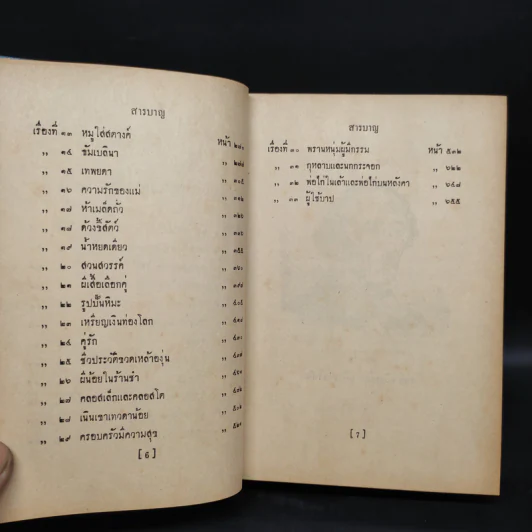 สารบาญ
เรื่องที่ ๑๓ หมูใส่สตางค์ หน้า
,, ๑๔ ธัมเบลินา ,,
,, ๑๕ เทพยดา ,, ๓๐๕
,, ๑๖ ความรักของแม่ ,,
,, ๑๗ ห้าเมล็ดถั่ว ,,
,, ๑๘ ด้วงขี้สัตว์ ,,
,, ๑๙ น้ำหยดเดียว ,, ๓๕๕
,, ๒๐ สวนสวรรค์ ,, ๓๖๐
,, ๒๑ ผีเสื้อเลือกคู่ ,,
,, ๒๒ รูปปั้นหิมะ ,, ๔๐๕
,, ๒๓ เหรียญเงินท่องโลก ,,
,, ๒๔ คู่รัก ,,
,, ๒๕ ชีวประวัติขวดเหล้าองุ่น ,,
,, ๒๖ ผีน้อยในร้านชำ ,,
,, ๒๗ คลอสเล็กและคลอสโต ,,
,, ๒๘ เนินเขาเทวดาน้อย ,,
,, ๒๙ ครอบครัวมีความสุข ,,
[ 6 ]
สารบาญ
เรื่องที่ ๓๐ พรานหนุ่มผู้มีกรรม หน้า ๕๓๒
,, ๓๑ กุหลาบและนกกระจอก ,, ๖๒๒
,, ๓๒ พ่อไก่ในเล้าและพ่อไก่บนหลังคา ,, ๖๔๗
,, ๓๓ ผู้ไร้บาป ,, ๖๕๕
[ 7 ]